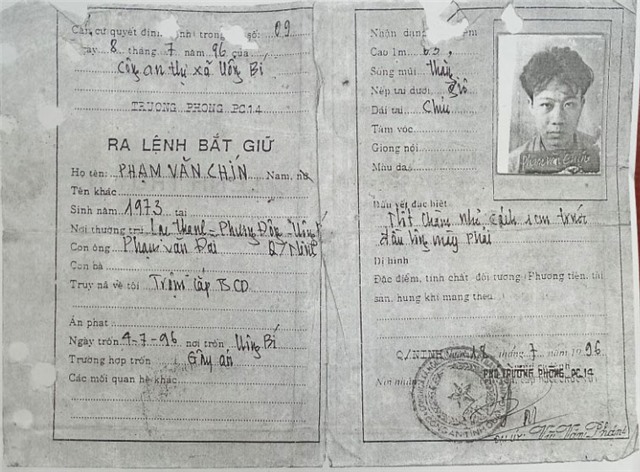 Căn cứ quyết định số: 09
Ngày 8 tháng 7 năm 96 của
Công an thị xã Uông Bí
TRƯỞNG PHÒNG PC14
RA LỆNH BẮT GIỮ
Họ tên: PHẠM VĂN CHÍN Nam, nữ
Tên khác
Sinh năm 1973 tại
Nơi thường trú Lạc Thanh = Phương Đông - Uông
Con ông Phạm Văn Đai Q/Ninh
Con bà
Truy nã về tội Trộm cắp TSCD
Án phạt
Ngày trốn 4-7-96 nơi trốn Uông Bí
Trường hợp trốn Gây án
Các mối quan hệ khác
Nhận dạng
Cao 1m 65
Sống mũi thẳng
Nếp tai dưới
Dái tai Chúc
Tầm vóc
Giọng nói
Màu da
Dấu vết đặc biệt
Một chấm nhỏ cách 1cm trước
đầu lông mày Phải
Dị hình
Đặc điểm, tính chất đối tượng (Phương tiện, tài
sản, hung khí mang theo)
Q/NINH ngày 18 tháng 7 năm 1996
PHÓ TRƯỞNG PHÒNG PC14
Nơi nhận